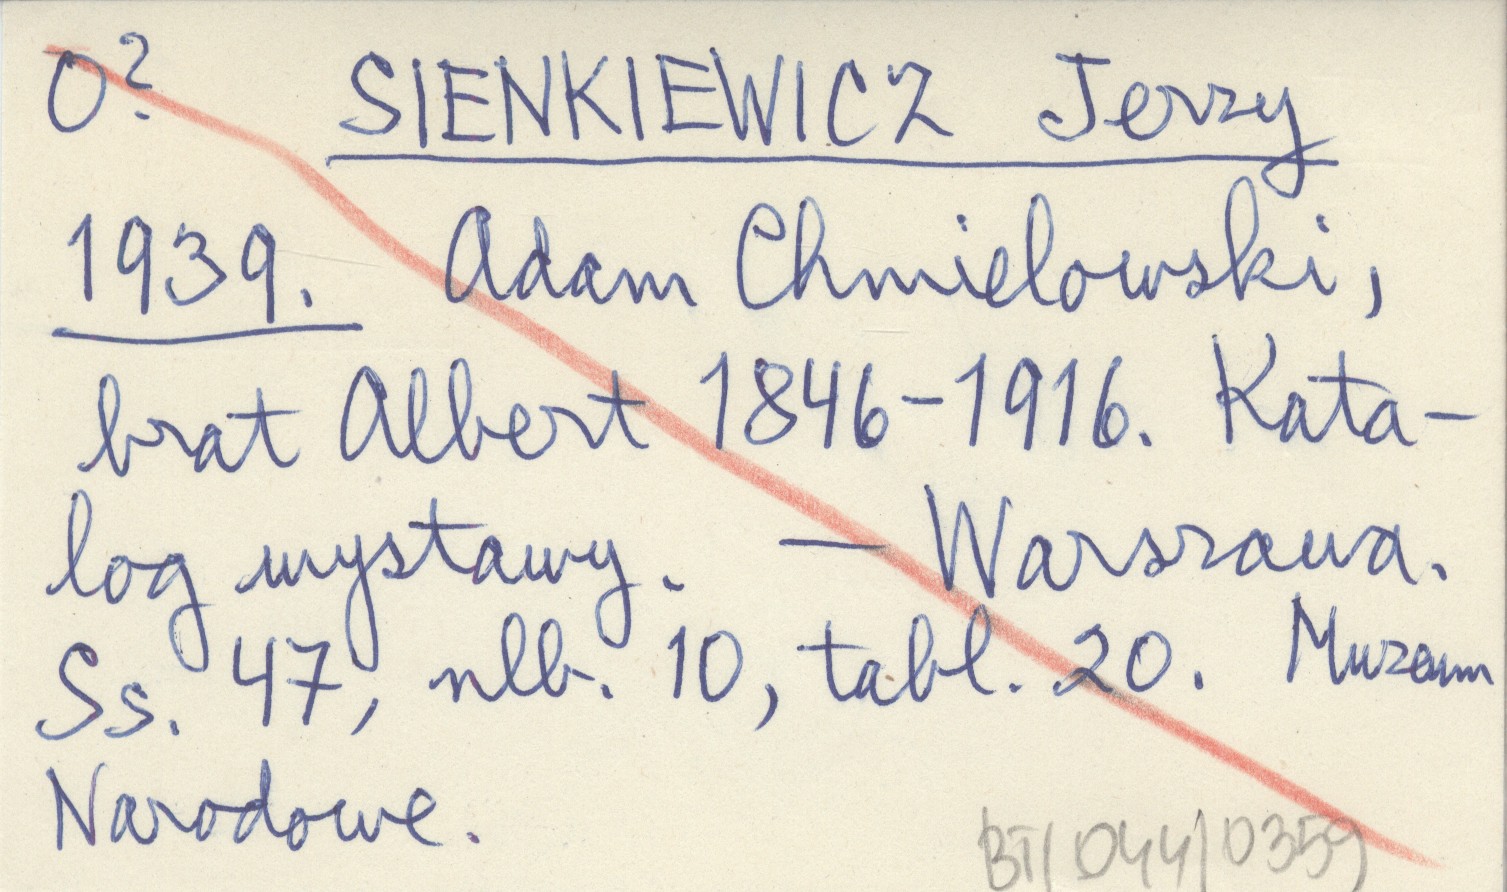 O? SIENKIEWICZ Jerzy
1939. Adam Chmielowski,
brat Albert 1846-1916. Kata-
log wystawy. — Warszawa.
Ss. 47, nlb. 10, tabl. 20. Muzeum
Narodowe.
BT/044/0359